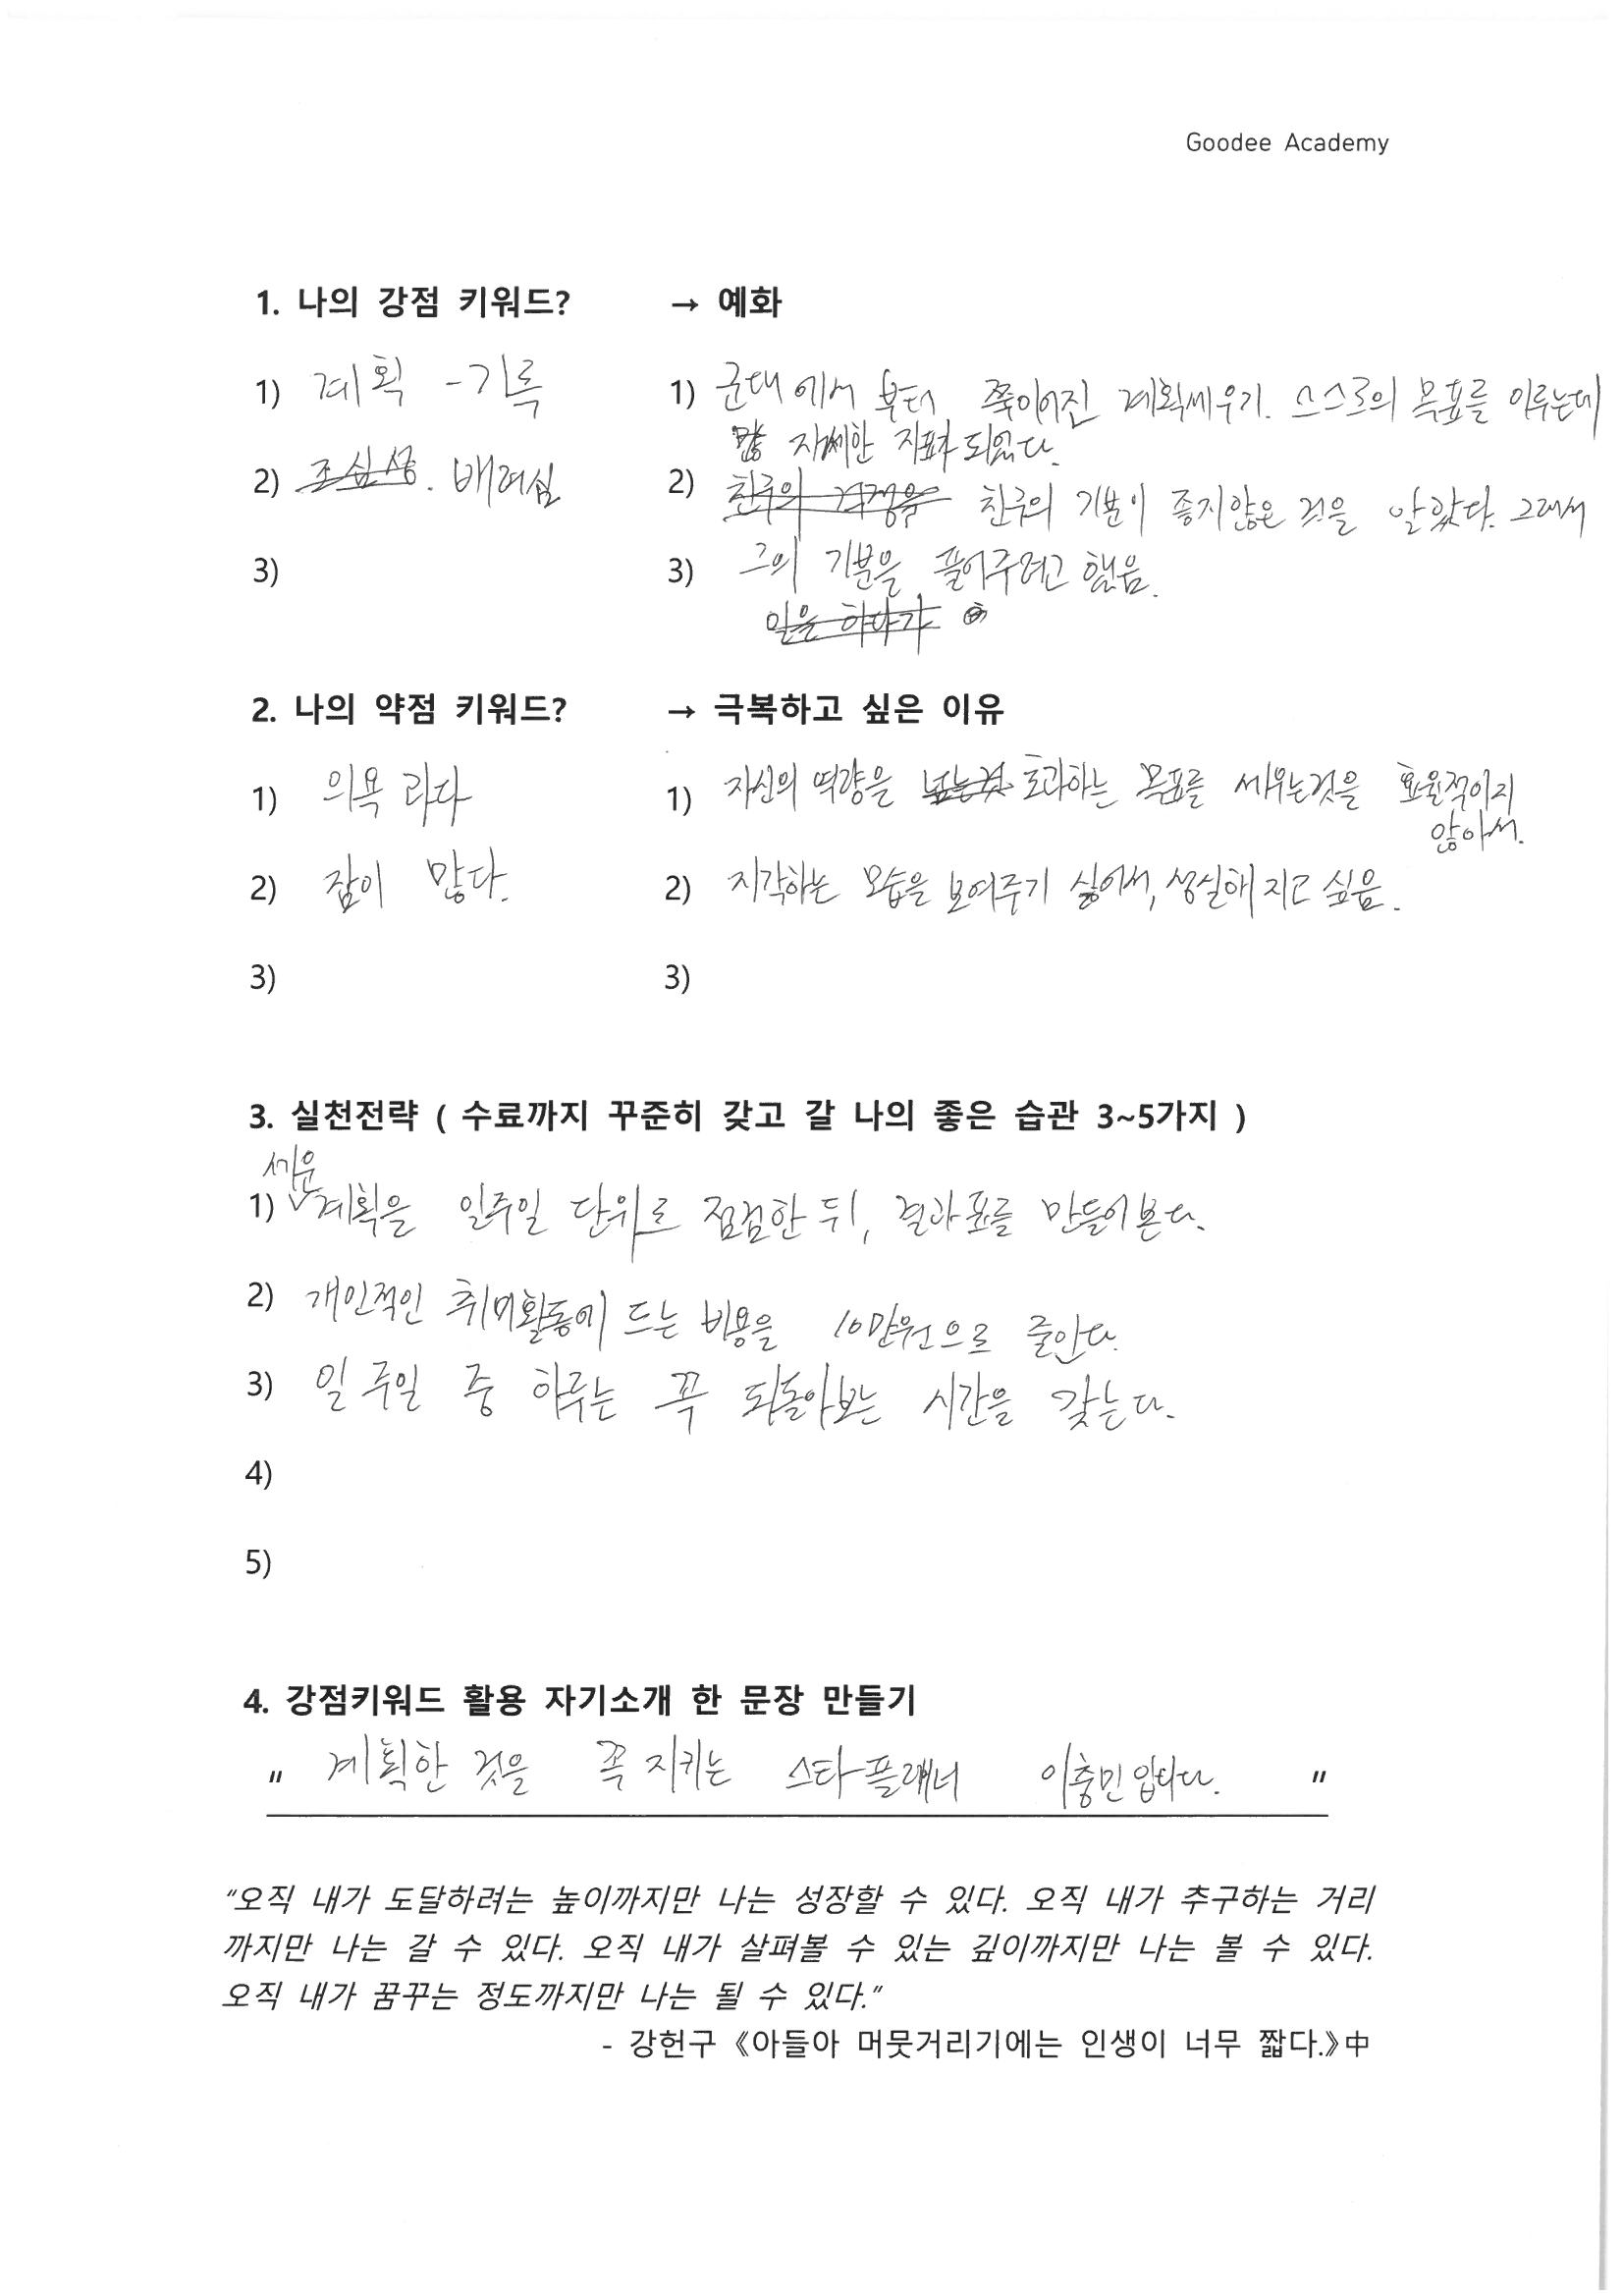 Goodee Academy
1. 나의 강점 키워드? → 예화
1) 계획 - 기록 1) 군대에서 부터 쭉이어진 계획세우기. 스스로의 목표를 이루는데
자세한 지표가 되었다.
2) 조심성. 배려심 2) 친구의 걱정을 친구의 기분이 좋지않은 것을 알았다. 그래서
3) 3) 그의 기분을 풀어주려고 했음.
일을 하다가
2. 나의 약점 키워드? → 극복하고 싶은 이유
1) 의욕 과다 1) 자신의 역량을 넘는것 초과하는 목표를 세우는것은 효율적이지
않아서.
2) 잠이 많다. 2) 지각하는 모습을 보여주기 싫어서, 성실해지고 싶음.
3) 3)
3. 실천전략 ( 수료까지 꾸준히 갖고 갈 나의 좋은 습관 3~5가지 )
세운
1) 계획을 일주일 단위로 점검한 뒤, 결과표를 만들어본다.
2) 개인적인 취미활동에 드는 비용을 10만원으로 줄인다.
3) 일주일 중 하루는 꼭 되돌아보는 시간을 갖는다.
4)
5)
4. 강점키워드 활용 자기소개 한 문장 만들기
" 계획한 것을 꼭 지키는 스타플래너 이충민입니다. "
"오직 내가 도달하려는 높이까지만 나는 성장할 수 있다. 오직 내가 추구하는 거리
까지만 나는 갈 수 있다. 오직 내가 살펴볼 수 있는 깊이까지만 나는 볼 수 있다.
오직 내가 꿈꾸는 정도까지만 나는 될 수 있다."
- 강헌구 《아들아 머뭇거리기에는 인생이 너무 짧다.》中